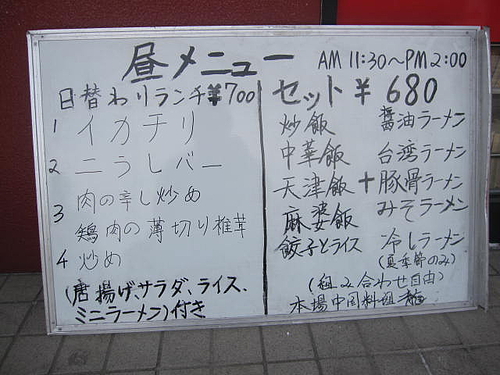 昼メニュー AM 11:30～PM 2:00
日替わりランチ¥700
1 イカチリ
2 ニラレバー
3 肉の辛し炒め
鶏肉の薄切り椎茸
4 炒め
(唐揚げ、サラダ、ライス、
ミニラーメン)付き
セット ¥ 680
炒飯 醤油ラーメン
中華飯 台湾ラーメン
天津飯 + 豚骨ラーメン
麻婆飯 みそラーメン
餃子とライス 冷しラーメン
(夏季節のみ)
(組み合わせ自由)
本場中国料理